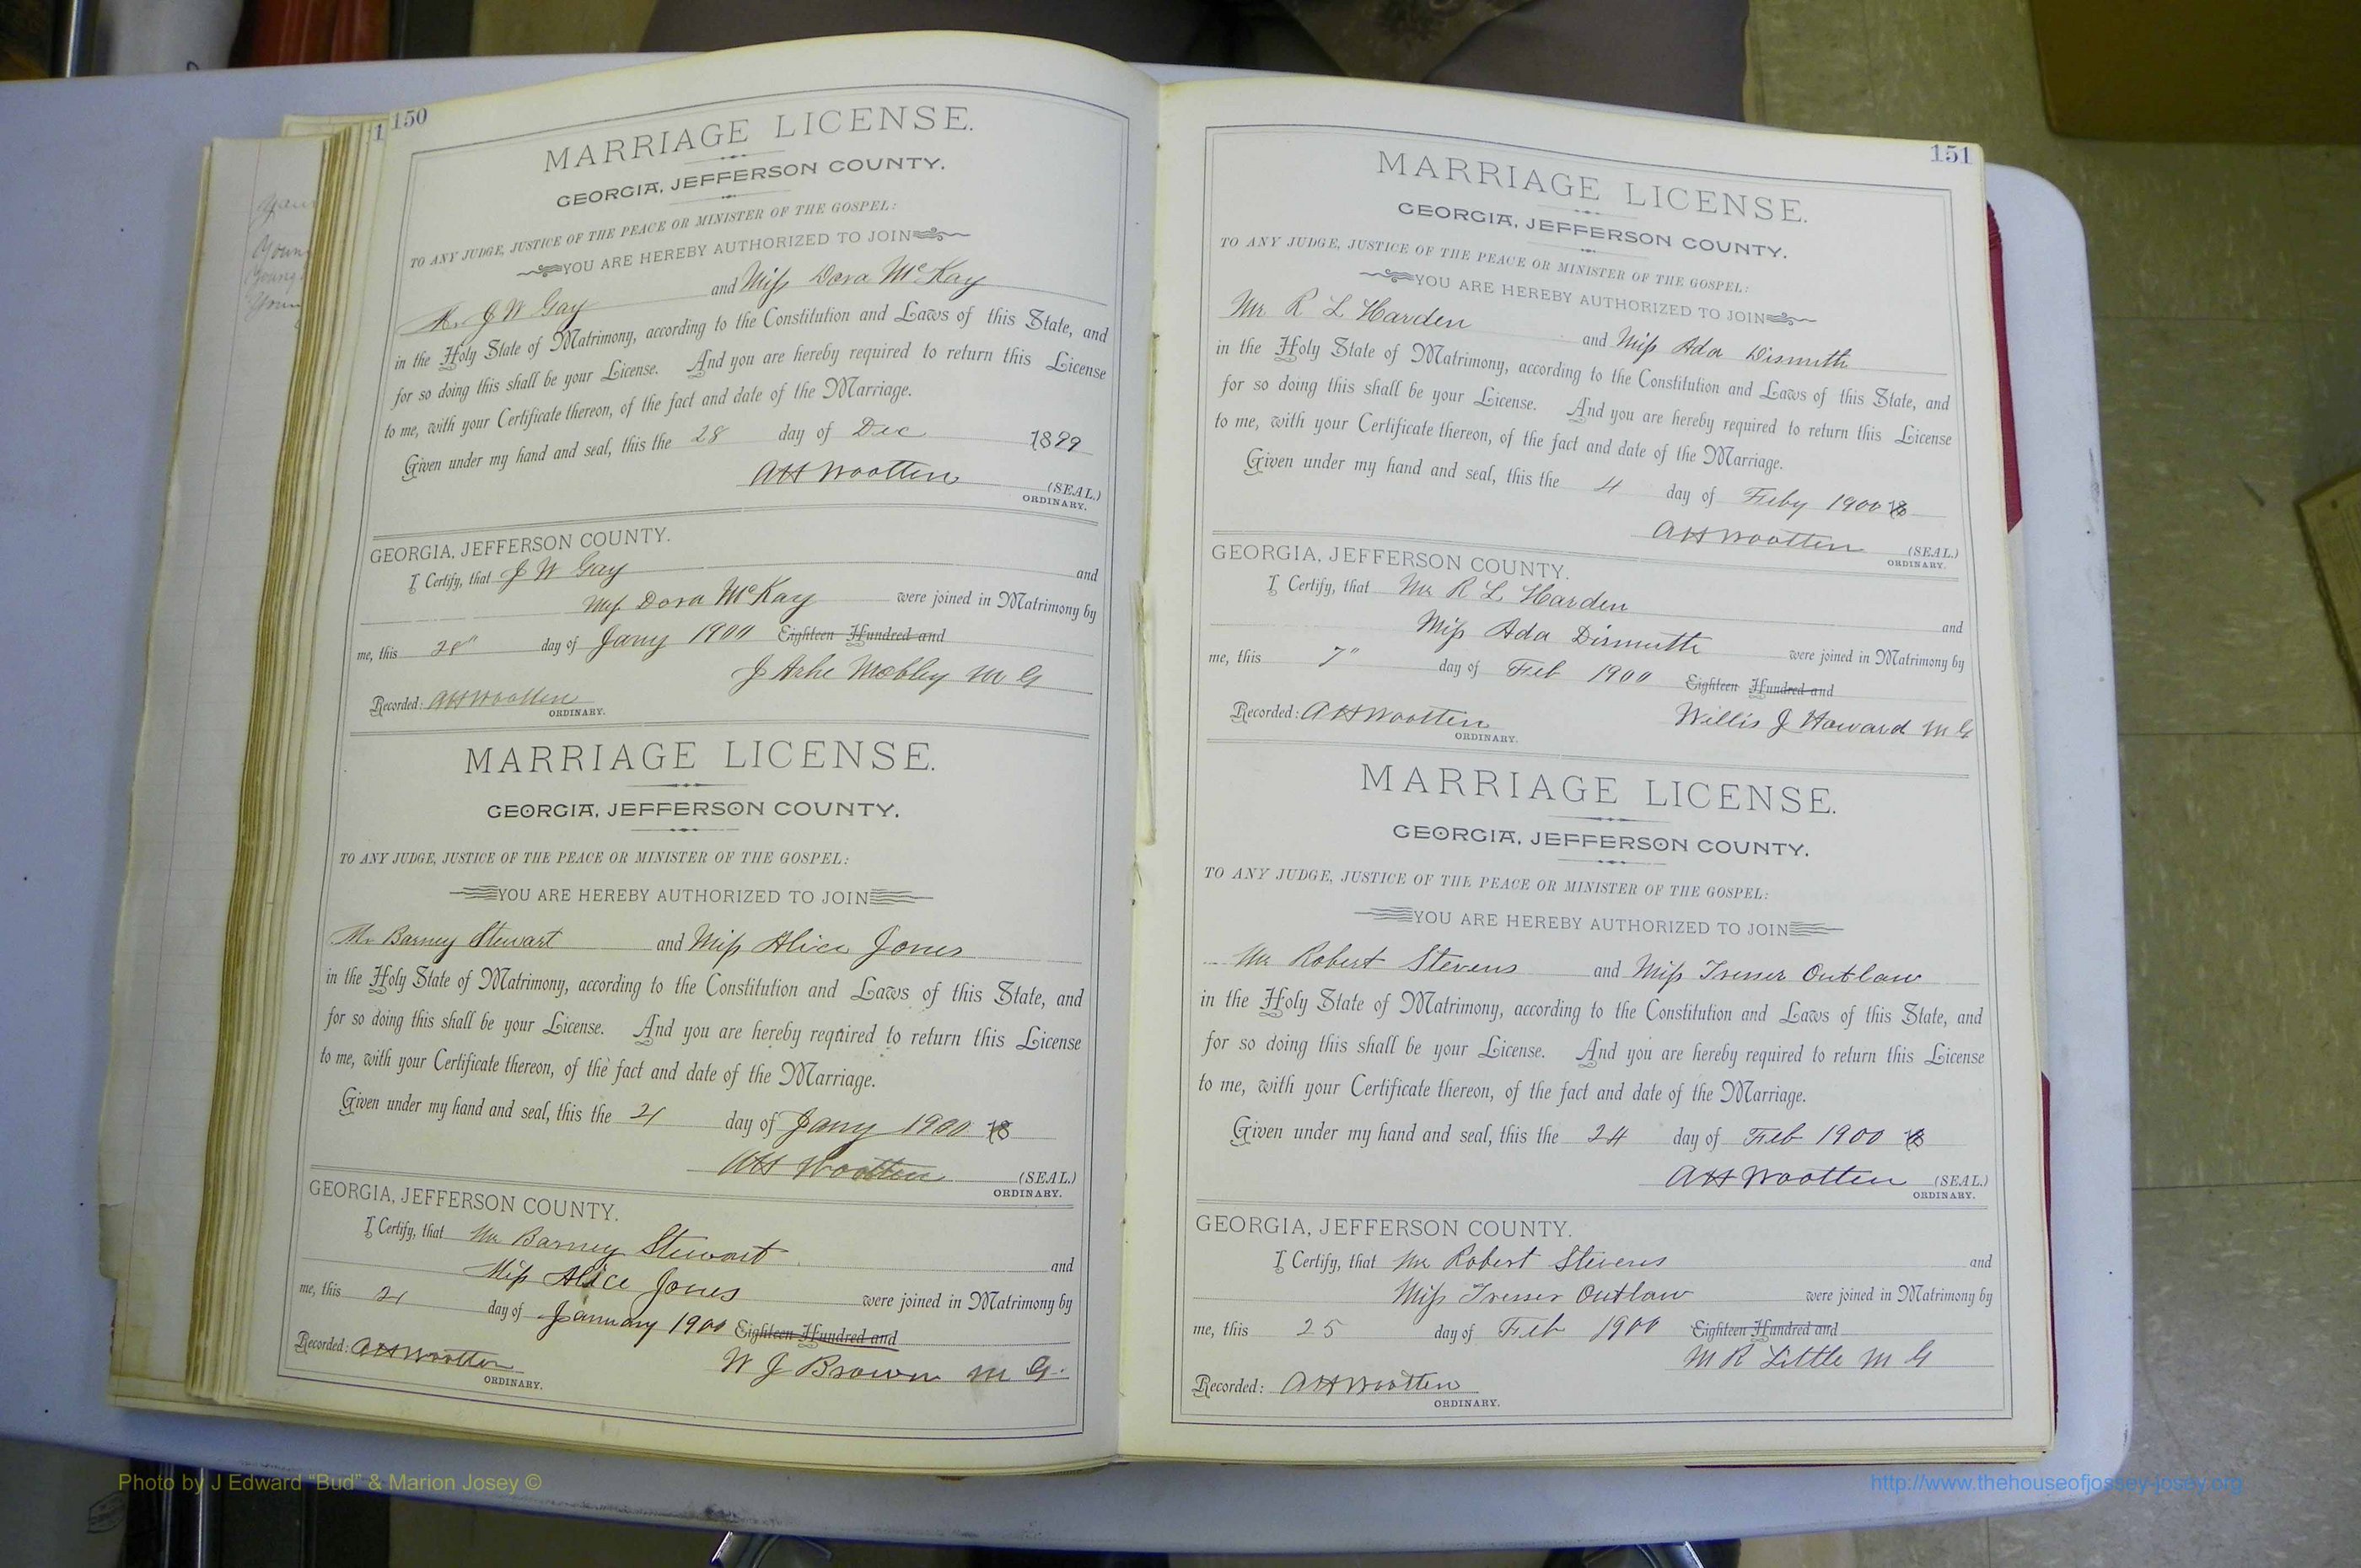 150
MARRIAGE LICENSE.
GEORGIA, JEFFERSON COUNTY.
TO ANY JUDGE, JUSTICE OF THE PEACE OR MINISTER OF THE GOSPEL:
YOU ARE HEREBY AUTHORIZED TO JOIN
Mr. J W Gay and Miss Dora McKay
in the Holy State of Matrimony, according to the Constitution and Laws of this State, and
for so doing this shall be your License. And you are hereby required to return this License
to me, with your Certificate thereon, of the fact and date of the Marriage.
Given under my hand and seal, this the 28 day of Dec 1899
AH Wootten (SEAL.)
ORDINARY.
GEORGIA, JEFFERSON COUNTY.
I Certify, that J W Gay and
Miss Dora McKay were joined in Matrimony by
me, this 28" day of Jany 1900 Eighteen Hundred and
J Ashe Mobley M G
Recorded: AH Wootten
ORDINARY.
MARRIAGE LICENSE.
GEORGIA, JEFFERSON COUNTY.
TO ANY JUDGE, JUSTICE OF THE PEACE OR MINISTER OF THE GOSPEL:
YOU ARE HEREBY AUTHORIZED TO JOIN
Mr. Barney Stewart and Miss Alice Jones
in the Holy State of Matrimony, according to the Constitution and Laws of this State, and
for so doing this shall be your License. And you are hereby required to return this License
to me, with your Certificate thereon, of the fact and date of the Marriage.
Given under my hand and seal, this the 21 day of Jany 1900 18
AH Wootten (SEAL.)
ORDINARY.
GEORGIA, JEFFERSON COUNTY.
I Certify, that Mr Barney Stewart and
Miss Alice Jones were joined in Matrimony by
me, this 21 day of January 1900 Eighteen Hundred and
W J Brown M G.
Recorded: AH Wootten
ORDINARY.
151
MARRIAGE LICENSE.
GEORGIA, JEFFERSON COUNTY.
TO ANY JUDGE, JUSTICE OF THE PEACE OR MINISTER OF THE GOSPEL:
YOU ARE HEREBY AUTHORIZED TO JOIN
Mr R L Harden and Miss Ada Dismuth
in the Holy State of Matrimony, according to the Constitution and Laws of this State, and
for so doing this shall be your License. And you are hereby required to return this License
to me, with your Certificate thereon, of the fact and date of the Marriage.
Given under my hand and seal, this the 4 day of Feby 1900 18
AH Wootten (SEAL.)
ORDINARY.
GEORGIA, JEFFERSON COUNTY.
I Certify, that Mr R L Harden and
Miss Ada Dismuth were joined in Matrimony by
me, this 7" day of Feb 1900 Eighteen Hundred and
Willis J Howard M G
Recorded: AH Wootten
ORDINARY.
MARRIAGE LICENSE.
GEORGIA, JEFFERSON COUNTY.
TO ANY JUDGE, JUSTICE OF THE PEACE OR MINISTER OF THE GOSPEL:
YOU ARE HEREBY AUTHORIZED TO JOIN
Mr Robert Stevens and Miss Tresser Outlaw
in the Holy State of Matrimony, according to the Constitution and Laws of this State, and
for so doing this shall be your License. And you are hereby required to return this License
to me, with your Certificate thereon, of the fact and date of the Marriage.
Given under my hand and seal, this the 24 day of Feb 1900 18
AH Wootten (SEAL.)
ORDINARY.
GEORGIA, JEFFERSON COUNTY.
I Certify, that Mr Robert Stevens and
Miss Tresser Outlaw were joined in Matrimony by
me, this 25 day of Feb 1900 Eighteen Hundred and
M R Little M G
Recorded: AH Wootten
ORDINARY.
Photo by J Edward “Bud” & Marion Josey ©
http://www.thehouseofjossey-josey.org